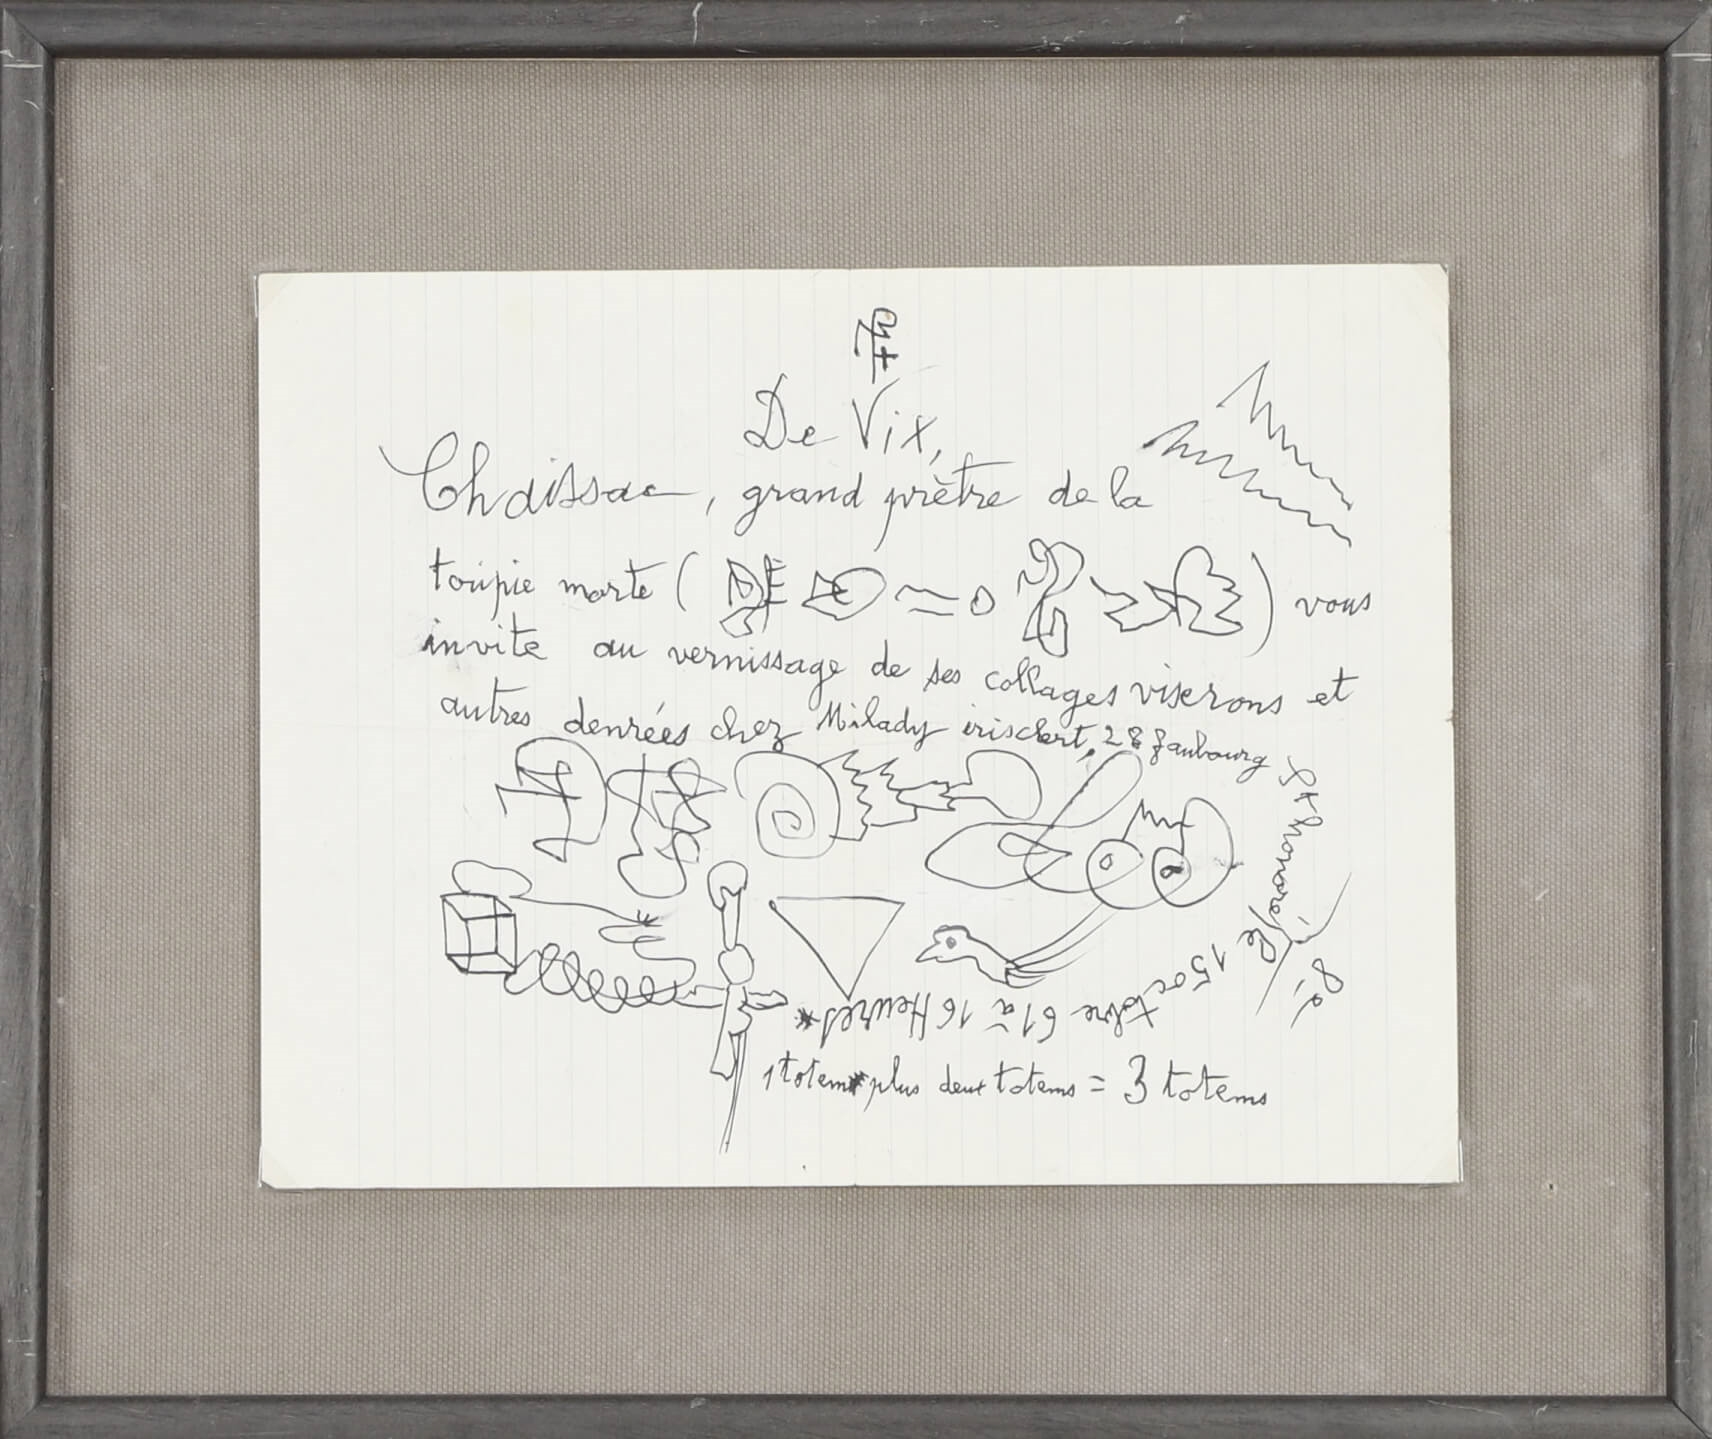 De Vix,
Chaissac, grand prêtre de la
toupie morte ( ) vous
invite au vernissage de ses collages viserons et
autres denrées chez Milady iris clert, 28 faubourg
St honoré, 8e,
le 15 octobre 61 à 16 Heures*
1 totem* plus deux totems = 3 totems